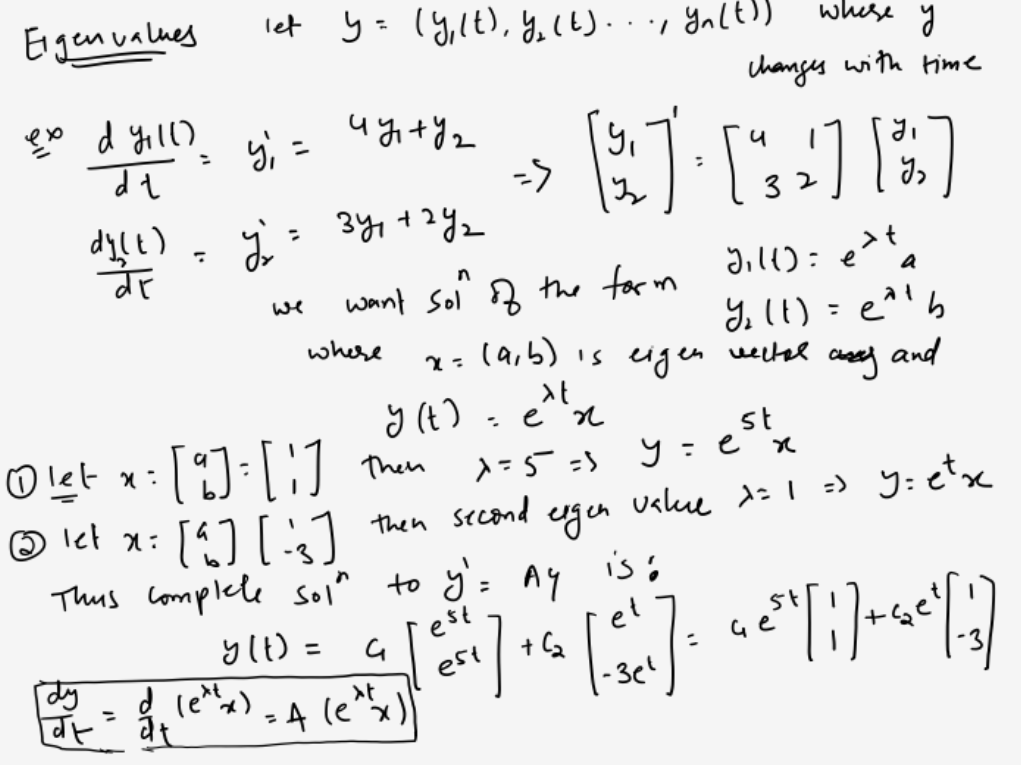 Eigenvalues let y = (y₁(t), y₂(t) . . ., yₙ(t)) where y
changes with time
ex d y₁(t)/dt = y₁' = 4y₁+y₂ => [y₁ y₂]' = [4 1; 3 2] [y₁ y₂]
dy₂(t)/dt = y₂' = 3y₁+2y₂
we want solⁿ of the form y₁(t) = e^λt a
y₂(t) = e^λt b
where x = (a,b) is eigen vector and
y(t) = e^λt x
① let x = [a b] = [1 1] then λ=5 => y = e^5t x
② let x = [a b] [1 -3] then second eigen value λ=1 => y = e^t x
Thus complete solⁿ to y' = Ay is:
y(t) = C₁ [e^5t e^5t] + C₂ [e^t -3e^t] = C₁e^5t [1 1] + C₂e^t [1 -3]
dy/dt = d/dt (e^λt x) = A (e^λt x)